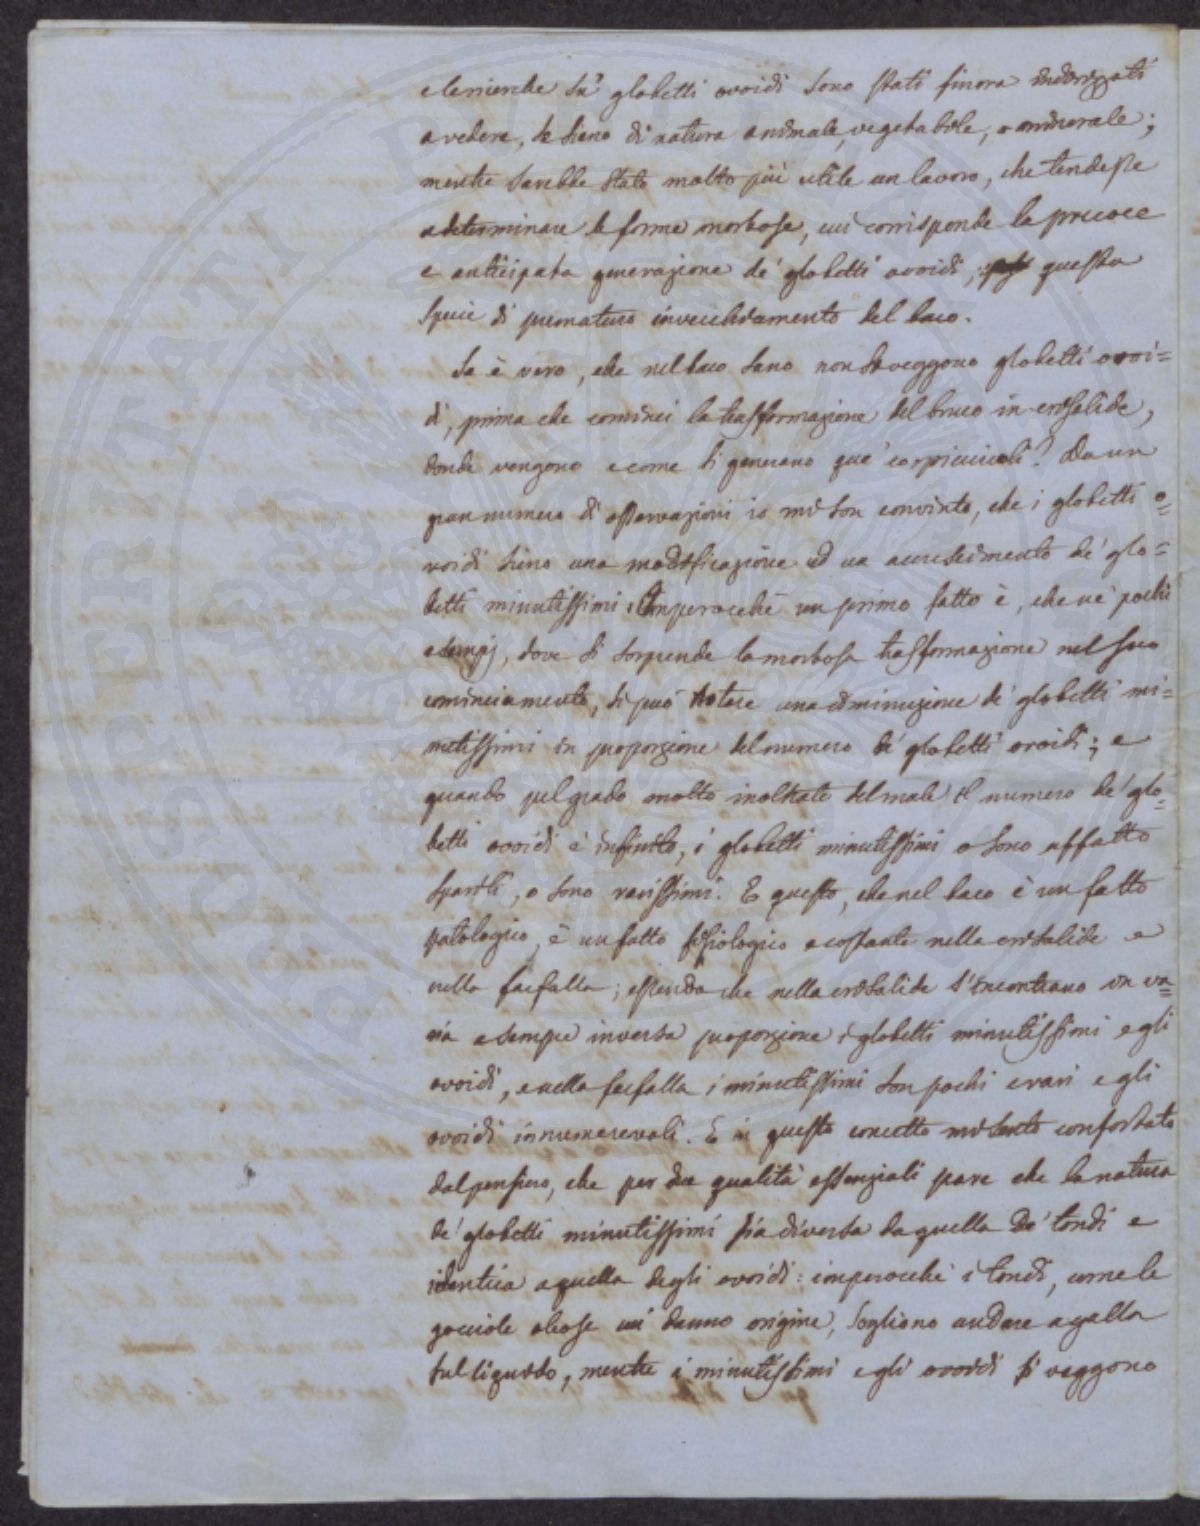 e le ricerche su' globetti ovoidi sono stati finora indirizzati
a vedere, se sieno di natura animale, vegetabile, o minerale;
mentre sarebbe stato molto più utile un lavoro, che tendesse
a determinare le forme morbose, cui corrisponde la precoce
e anticipata generazione de' globetti ovoidi, questa
specie di prematuro invecchiamento del baco.
Se è vero, che nel baco sano non si veggono globetti ovoi=
di, prima che cominci la trasformazione del bruco in crisalide,
donde vengono e come si generano que' corpicciuoli? Da un
gran numero di osservazioni io mi son convinto, che i globetti o=
voidi sieno una modificazione ed un accrescimento de' glo=
betti minutissimi. Imperocchè un primo fatto è, che ne' pochi
esempj, dove si sorprende la morbosa trasformazione nel suo
cominciamento, si può notare una diminuzione de' globetti mi=
nutissimi in proporzione del numero de' globetti ovoidi; e
quando pel grado molto inoltrato del male il numero de' glo=
betti ovoidi è infinito, i globetti minutissimi o sono affatto
spariti, o sono rarissimi. E questo, che nel baco è un fatto
patologico, è un fatto fisiologico e costante nella crisalide e
nella farfalla; essendo che nella crisalide s'incontrano in va=
ria e sempre inversa proporzione i globetti minutissimi e gli
ovoidi, e nella farfalla i minutissimi son pochi e rari e gli
ovoidi innumerevoli. E in questo concetto mi sento confortato
dal pensiero, che per due qualità essenziali pare che la natura
de' globetti minutissimi sia diversa da quella de' tondi e
identica a quella degli ovoidi: imperocchè i tondi, come le
gocciole oleose cui danno origine, sogliono andare a galla
sul liquido, mentre i minutissimi e gli ovoidi si veggono